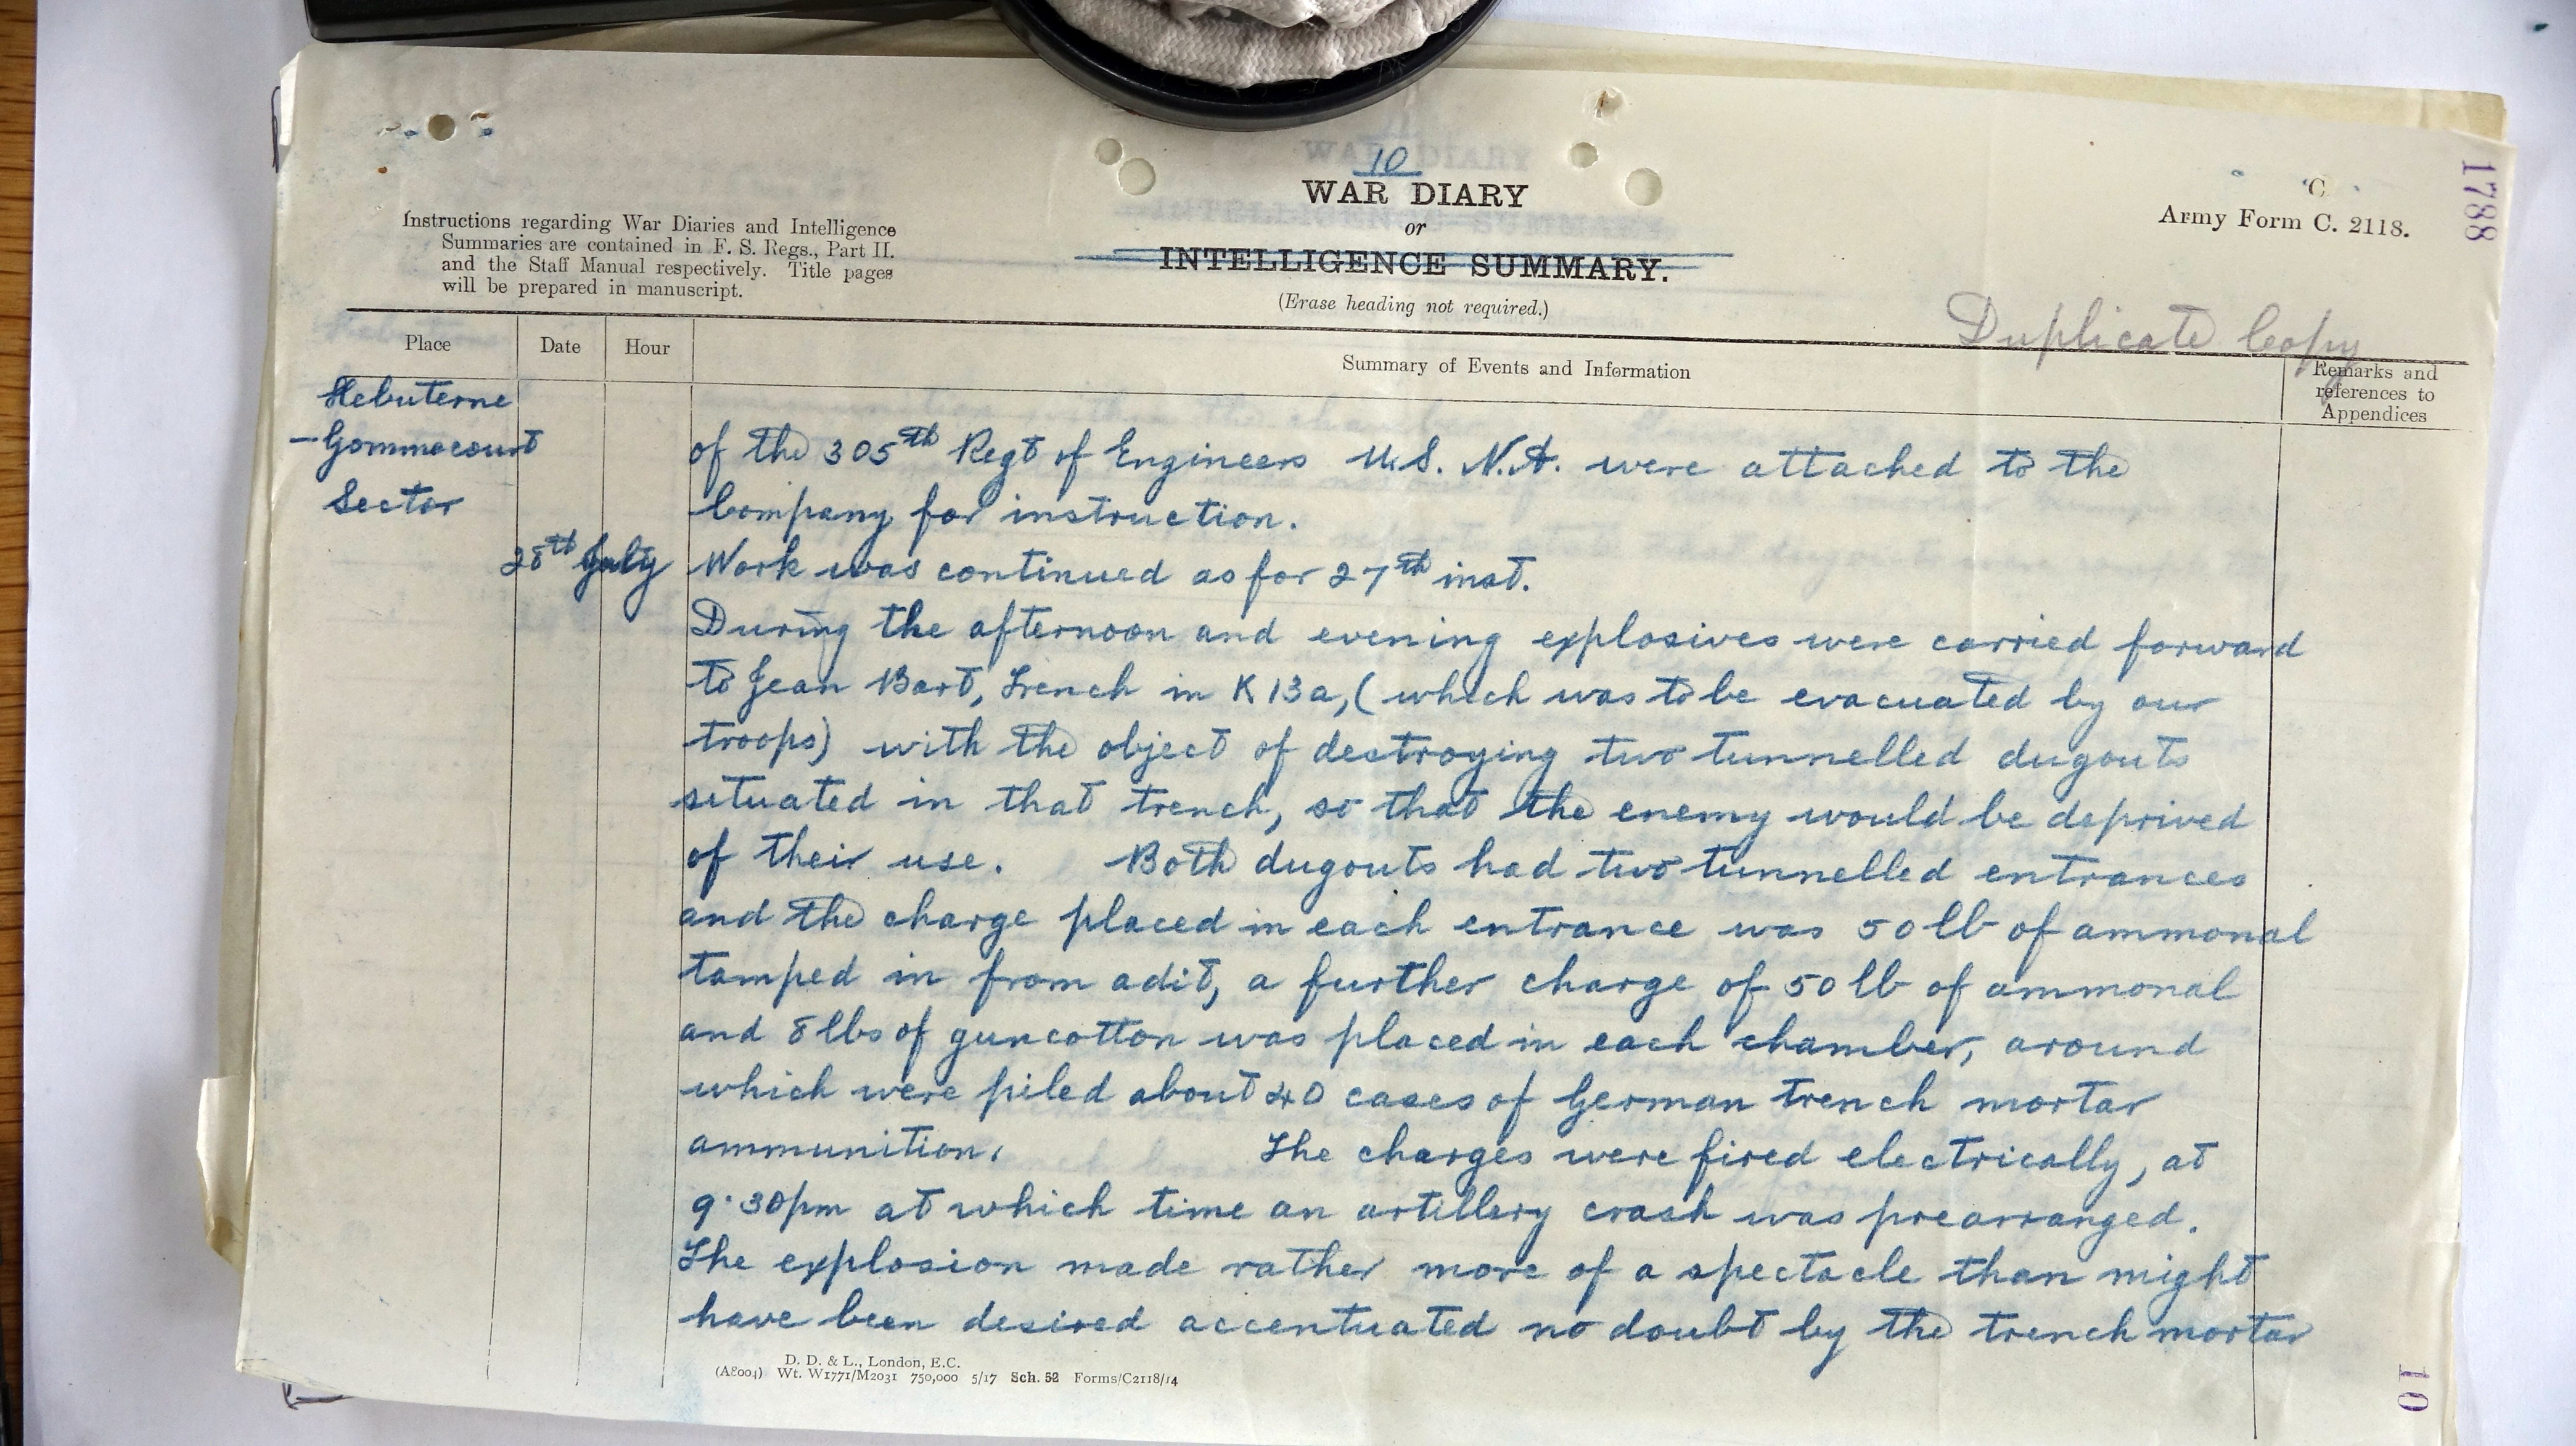 10
WAR DIARY
or
INTELLIGENCE SUMMARY.
(Erase heading not required.)
Instructions regarding War Diaries and Intelligence
Summaries are contained in F. S. Regs., Part II.
and the Staff Manual respectively. Title pages
will be prepared in manuscript.
Army Form C. 2118.
1788
Duplicate Copy
Place
Date
Hour
Summary of Events and Information
Remarks and
references to
Appendices
Hebuterne
- Gommecourt
Sector
of the 305th Regt of Engineers U.S. N.A. were attached to the
Company for instruction.
28th July Work was continued as for 27th inst.
During the afternoon and evening explosives were carried forward
to Jean Bart, Trench in K13a, (which was to be evacuated by our
troops) with the object of destroying two tunnelled dugouts
situated in that trench, so that the enemy would be deprived
of their use. Both dugouts had two tunnelled entrances
and the charge placed in each entrance was 50 lb of ammonal
tamped in from adit, a further charge of 50 lb of ammonal
and 8 lbs of guncotton was placed in each chamber, around
which were piled about 40 cases of German trench mortar
ammunition. The charges were fired electrically, at
9.30pm at which time an artillery crash was prearranged.
The explosion made rather more of a spectacle than might
have been desired accentuated no doubt by the trench mortar
D. D. & L., London, E.C.
(A8004) Wt. W1771/M2031 750,000 5/17 Sch. 52 Forms/C2118/14
10